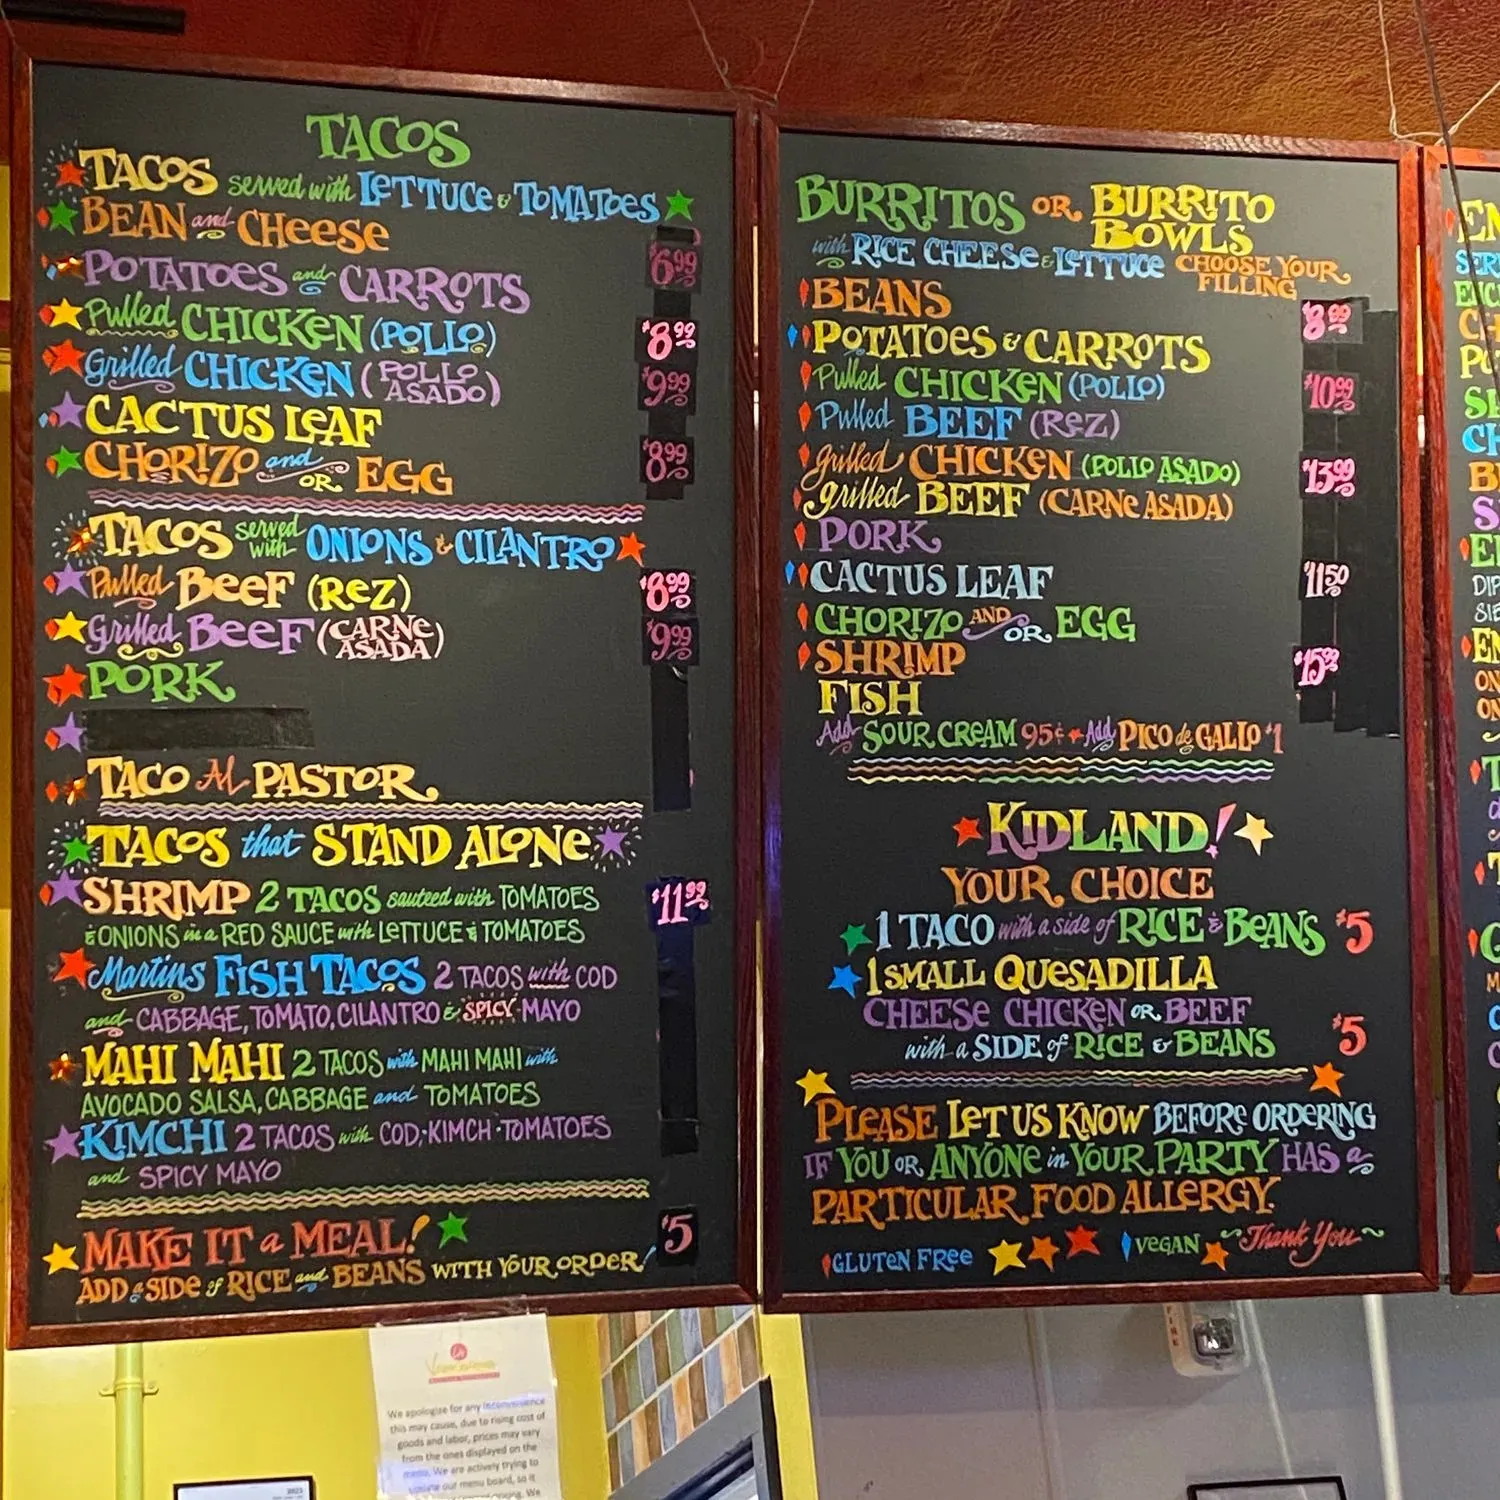 TACOS
TACOS served with LETTUCE & TOMATOES
BEAN and CHEESE
$6.99
POTATOES and CARROTS
Pulled CHICKEN (POLLO)
$8.99
Grilled CHICKEN (POLLO ASADO)
$9.99
CACTUS LEAF
CHORIZO and OR EGG
$8.99
TACOS served with ONIONS & CILANTRO
Pulled BEEF (REZ)
$8.99
Grilled BEEF (CARNE ASADA)
$9.99
PORK
TACO AL PASTOR
TACOS that STAND ALONE
SHRIMP 2 TACOS sauteed with TOMATOES
$11.99
& ONIONS in a RED SAUCE with LETTUCE & TOMATOES
Martins FISH TACOS 2 TACOS with COD
and CABBAGE, TOMATO, CILANTRO & SPICY MAYO
MAHI MAHI 2 TACOS with MAHI MAHI with
AVOCADO SALSA, CABBAGE and TOMATOES
KIMCHI 2 TACOS with COD, KIMCH · TOMATOES
and SPICY MAYO
MAKE IT a MEAL!
$5
ADD a SIDE of RICE and BEANS WITH YOUR ORDER!
BURRITOS OR BURRITO BOWLS
with RICE CHEESE & LETTUCE CHOOSE YOUR FILLING
BEANS
$8.99
POTATOES & CARROTS
Pulled CHICKEN (POLLO)
$10.99
Pulled BEEF (REZ)
grilled CHICKEN (POLLO ASADO)
$13.99
grilled BEEF (CARNE ASADA)
PORK
CACTUS LEAF
$11.50
CHORIZO AND OR EGG
SHRIMP
FISH
Add SOUR CREAM 95¢ Add PICO de GALLO $1
KIDLAND!
YOUR CHOICE
1 TACO with a side of RICE & BEANS $5
1 SMALL QUESADILLA
CHEESE CHICKEN OR BEEF
$5
with a SIDE of RICE & BEANS
PLEASE LET US KNOW BEFORE ORDERING
IF YOU OR ANYONE in YOUR PARTY HAS a
PARTICULAR FOOD ALLERGY.
GLUTEN FREE VEGAN Thank You
We apologize for any inconvenience
this may cause, due to rising cost of
goods and labor, prices may vary
from the ones displayed on the
menu. We are actively trying to
our menu board, so it